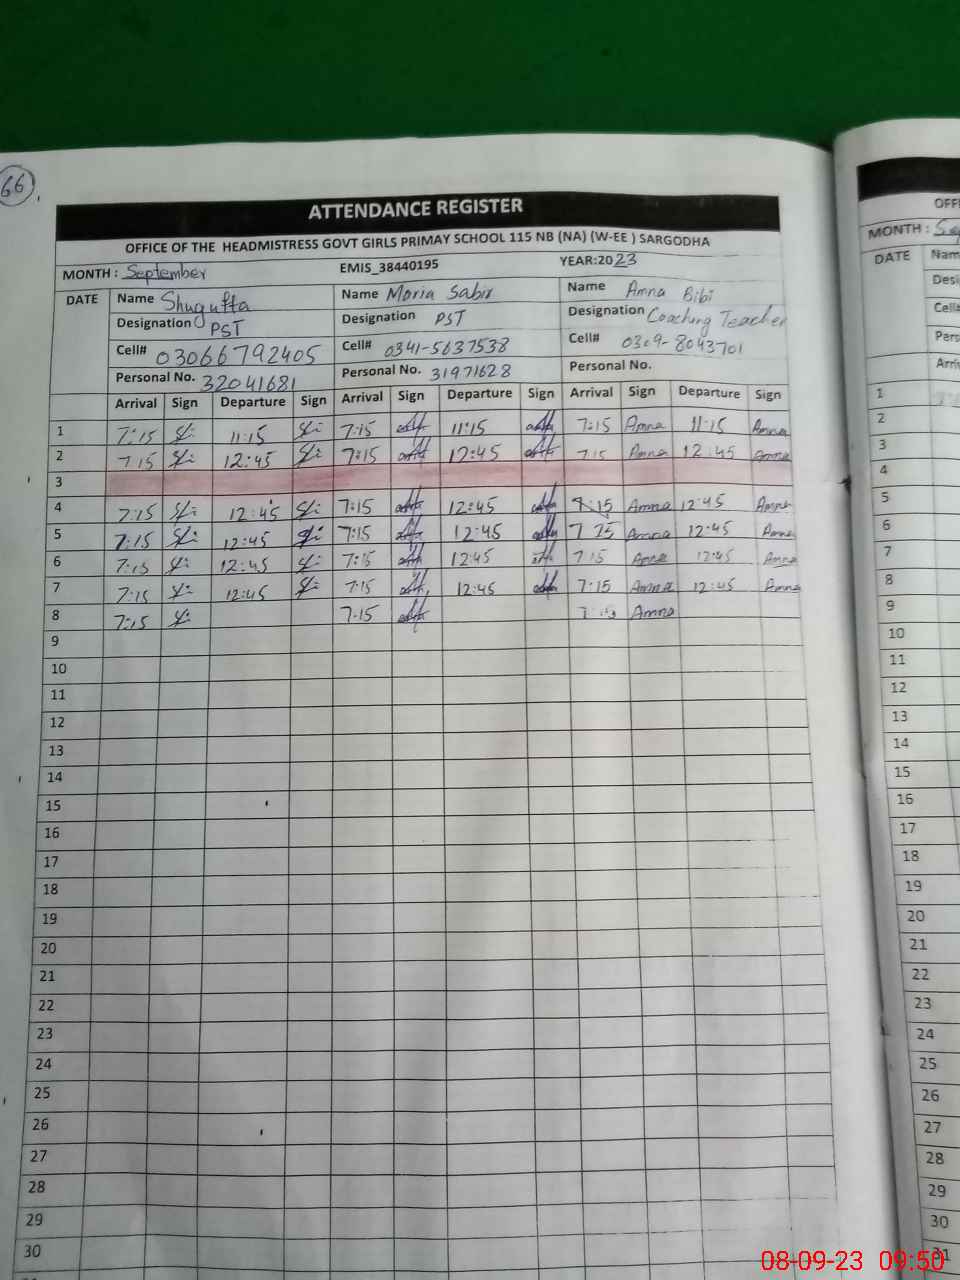 66
ATTENDANCE REGISTER
OFFICE OF THE HEADMISTRESS GOVT GIRLS PRIMAY SCHOOL 115 NB (NA) (W-EE ) SARGODHA
MONTH : September EMIS_38440195 YEAR:2023
DATE Name Shugufta Name Maria Sabir Name Amna Bibi
Designation PST Designation PST Designation Coaching Teacher
Cell# 03066792405 Cell# 0341-5637538 Cell# 0309-8043701
Personal No. 32041681 Personal No. 31971628 Personal No.
Arrival Sign Departure Sign Arrival Sign Departure Sign Arrival Sign Departure Sign
1 7:15 11:15 7:15 11:15 7:15 Amna 11:15 Amna
2 7:15 12:45 7:15 12:45 7:15 Amna 12:45 Amna
3
4 7:15 12:45 7:15 12:45 7:15 Amna 12:45 Amna
5 7:15 12:45 7:15 12:45 7 15 Amna 12:45 Amna
6 7:15 12:45 7:15 12:45 7:15 Amna 12:45 Amna
7 7:15 12:45 7:15 12:45 7:15 Amna 12:45 Amna
8 7:15 7:15 7:15 Amna
9
10
11
12
13
14
15
16
17
18
19
20
21
22
23
24
25
26
27
28
29
30
MONTH :
DATE
1
2
3
4
5
6
7
8
9
10
11
12
13
14
15
16
17
18
19
20
21
22
23
24
25
26
27
28
29
30
31
08-09-23 09:50